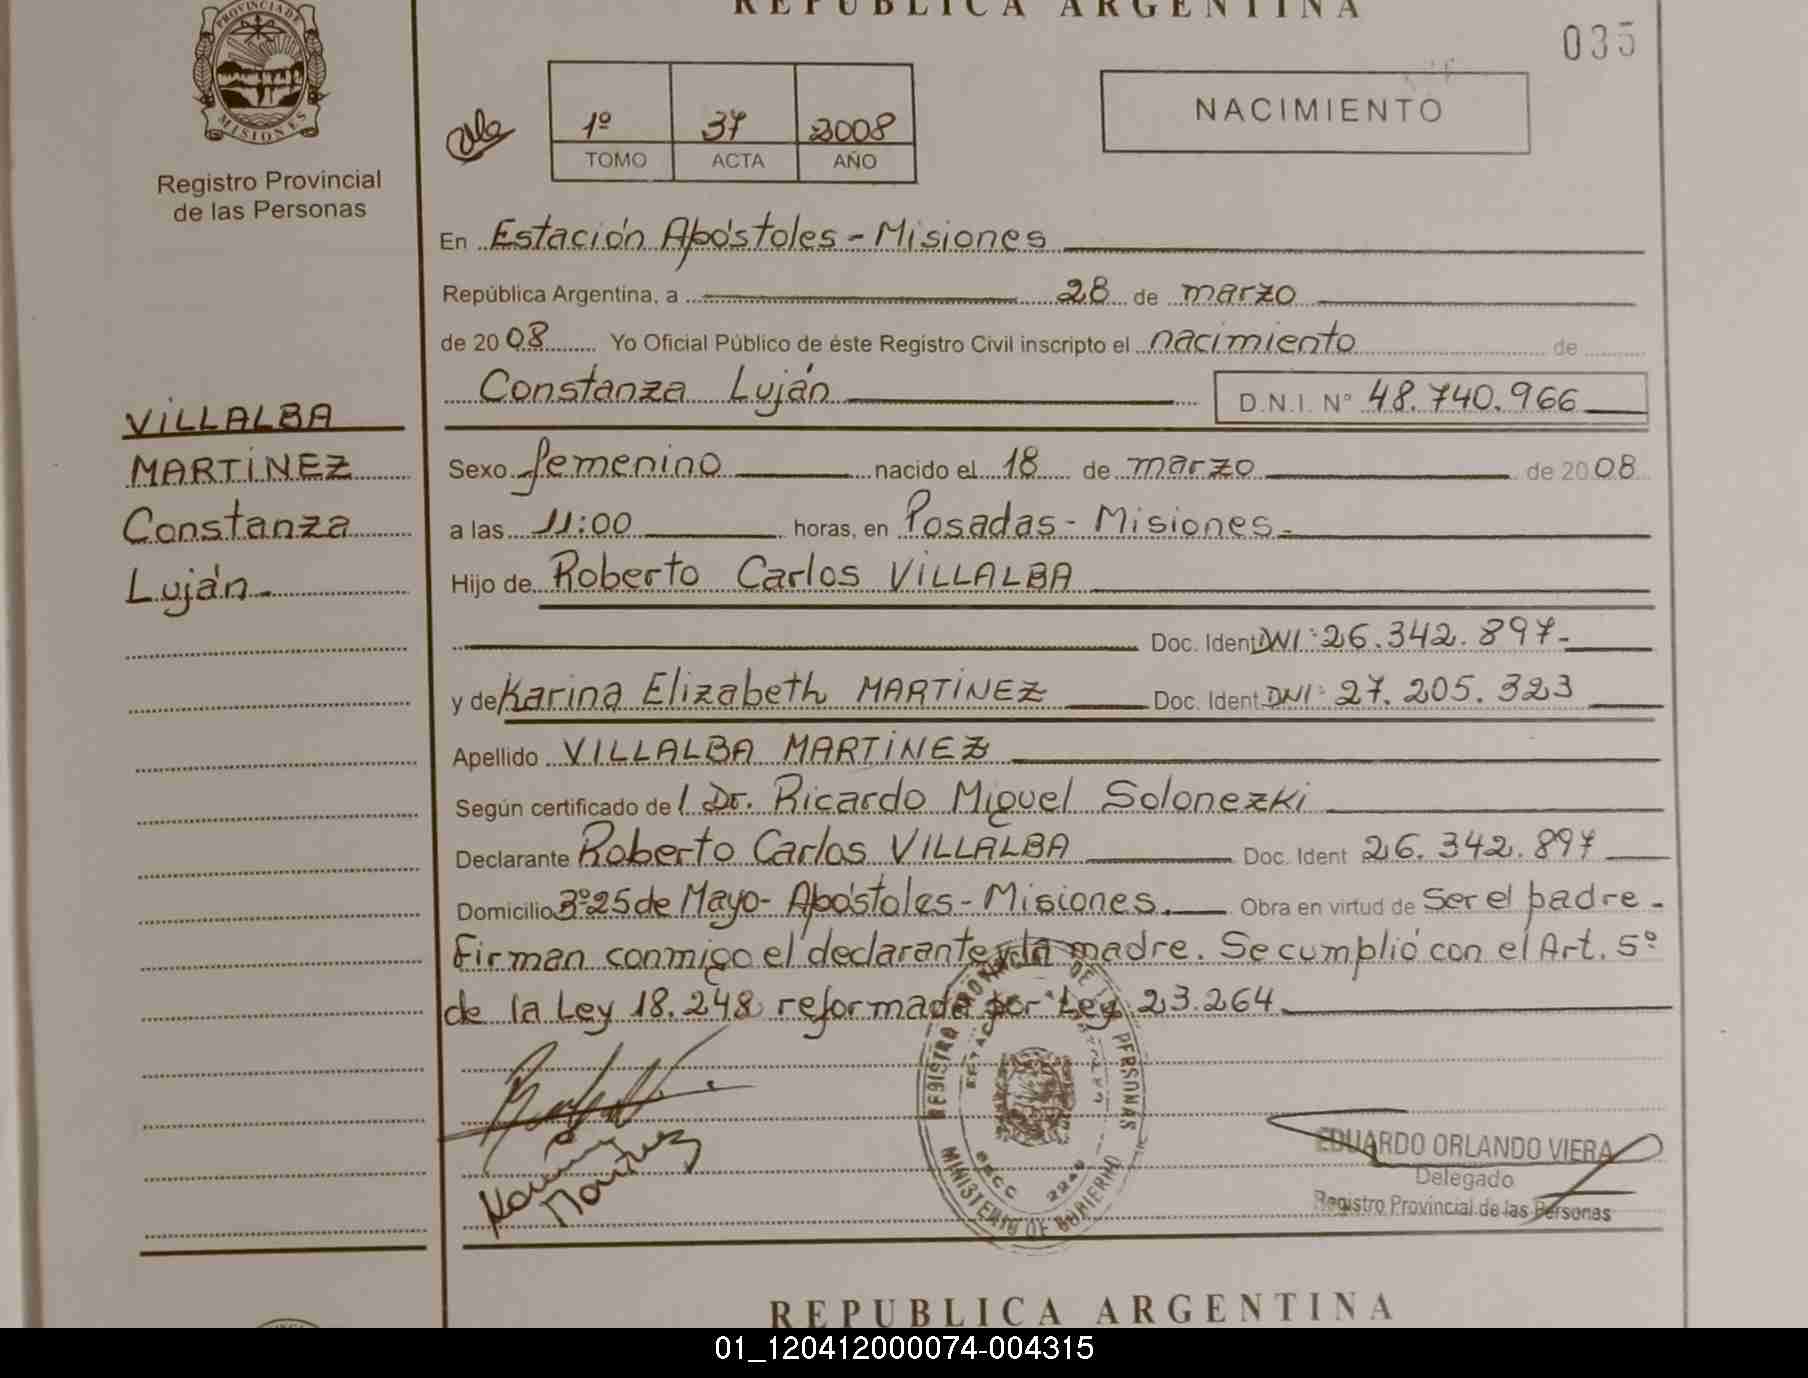 REPUBLICA ARGENTINA
035
PROVINCIA DE MISIONES
Registro Provincial
de las Personas
1º 37 2008
TOMO ACTA AÑO
NACIMIENTO
En Estación Apóstoles - Misiones
República Argentina, a 28 de marzo
de 2008 Yo Oficial Público de éste Registro Civil inscripto el nacimiento de
Constanza Luján D.N.I. N° 48.740.966
VILLALBA
MARTINEZ
Constanza
Luján.-
Sexo femenino nacido el 18 de marzo de 2008
a las 11:00 horas, en Posadas - Misiones.-
Hijo de Roberto Carlos VILLALBA
Doc. Ident DNI: 26.342.897.-
y de Karina Elizabeth MARTINEZ Doc. Ident DNI: 27.205.323
Apellido VILLALBA MARTINEZ
Según certificado de l Dr. Ricardo Miguel Solonezki
Declarante Roberto Carlos VILLALBA Doc. Ident 26.342.897
Domicilio Bº 25 de Mayo - Apóstoles - Misiones. Obra en virtud de Ser el padre.-
Firman conmigo el declarante y la madre. Se cumplió con el Art. 5º
de la Ley 18.248 reformada por Ley 23.264
Karina
Martinez
REGISTRO PROVINCIAL DE LAS PERSONAS
MINISTERIO DE GOBIERNO
EDUARDO ORLANDO VIERA
Delegado
Registro Provincial de las Personas
REPUBLICA ARGENTINA
01_120412000074-004315